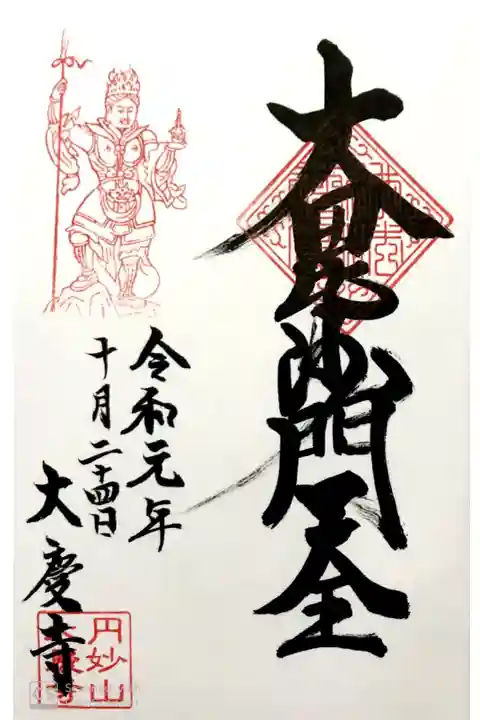 大毘沙門天王
令和元年
十月二十四日
大慶寺
円妙山
大慶寺